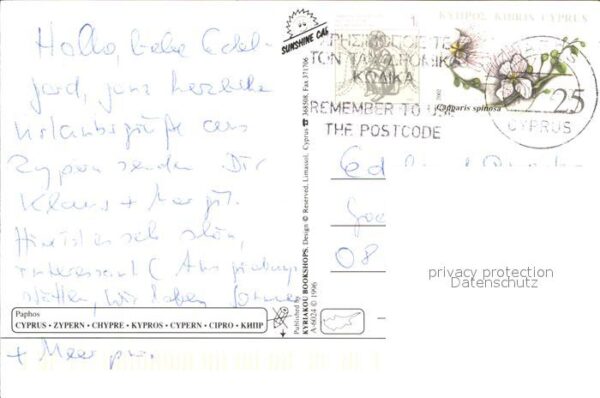 Hallo, liebe Edel-
gard, ganz herzliche
Urlaubsgrüße aus
Zypern senden Dir
Klaus + Margit.
Hier ist es sehr schön,
interessant (Ausgrabungs-
stätten, wir haben Sonne
+ Meer pur.
Paphos
CYPRUS • ZYPERN • CHYPRE • KYPROS • CYPERN • CIPRO • КИПР
SUNSHINE CAR
Published by
KYRIAKOU BOOKSHOPS. Design © Reserved. Limassol, Cyprus ☎ 368508, Fax 371706
A-6024 © 1996
ΚΥΠΡΟΣ KIBRIS CYPRUS
ΤΟΝ ΤΑΧΥΔΡΟΜΙΚΟ
ΚΩΔΙΚΑ
REMEMBER TO USE
THE POSTCODE
2002
Capparis spinosa
25
CYPRUS
Ed
08
privacy protection
Datenschutz